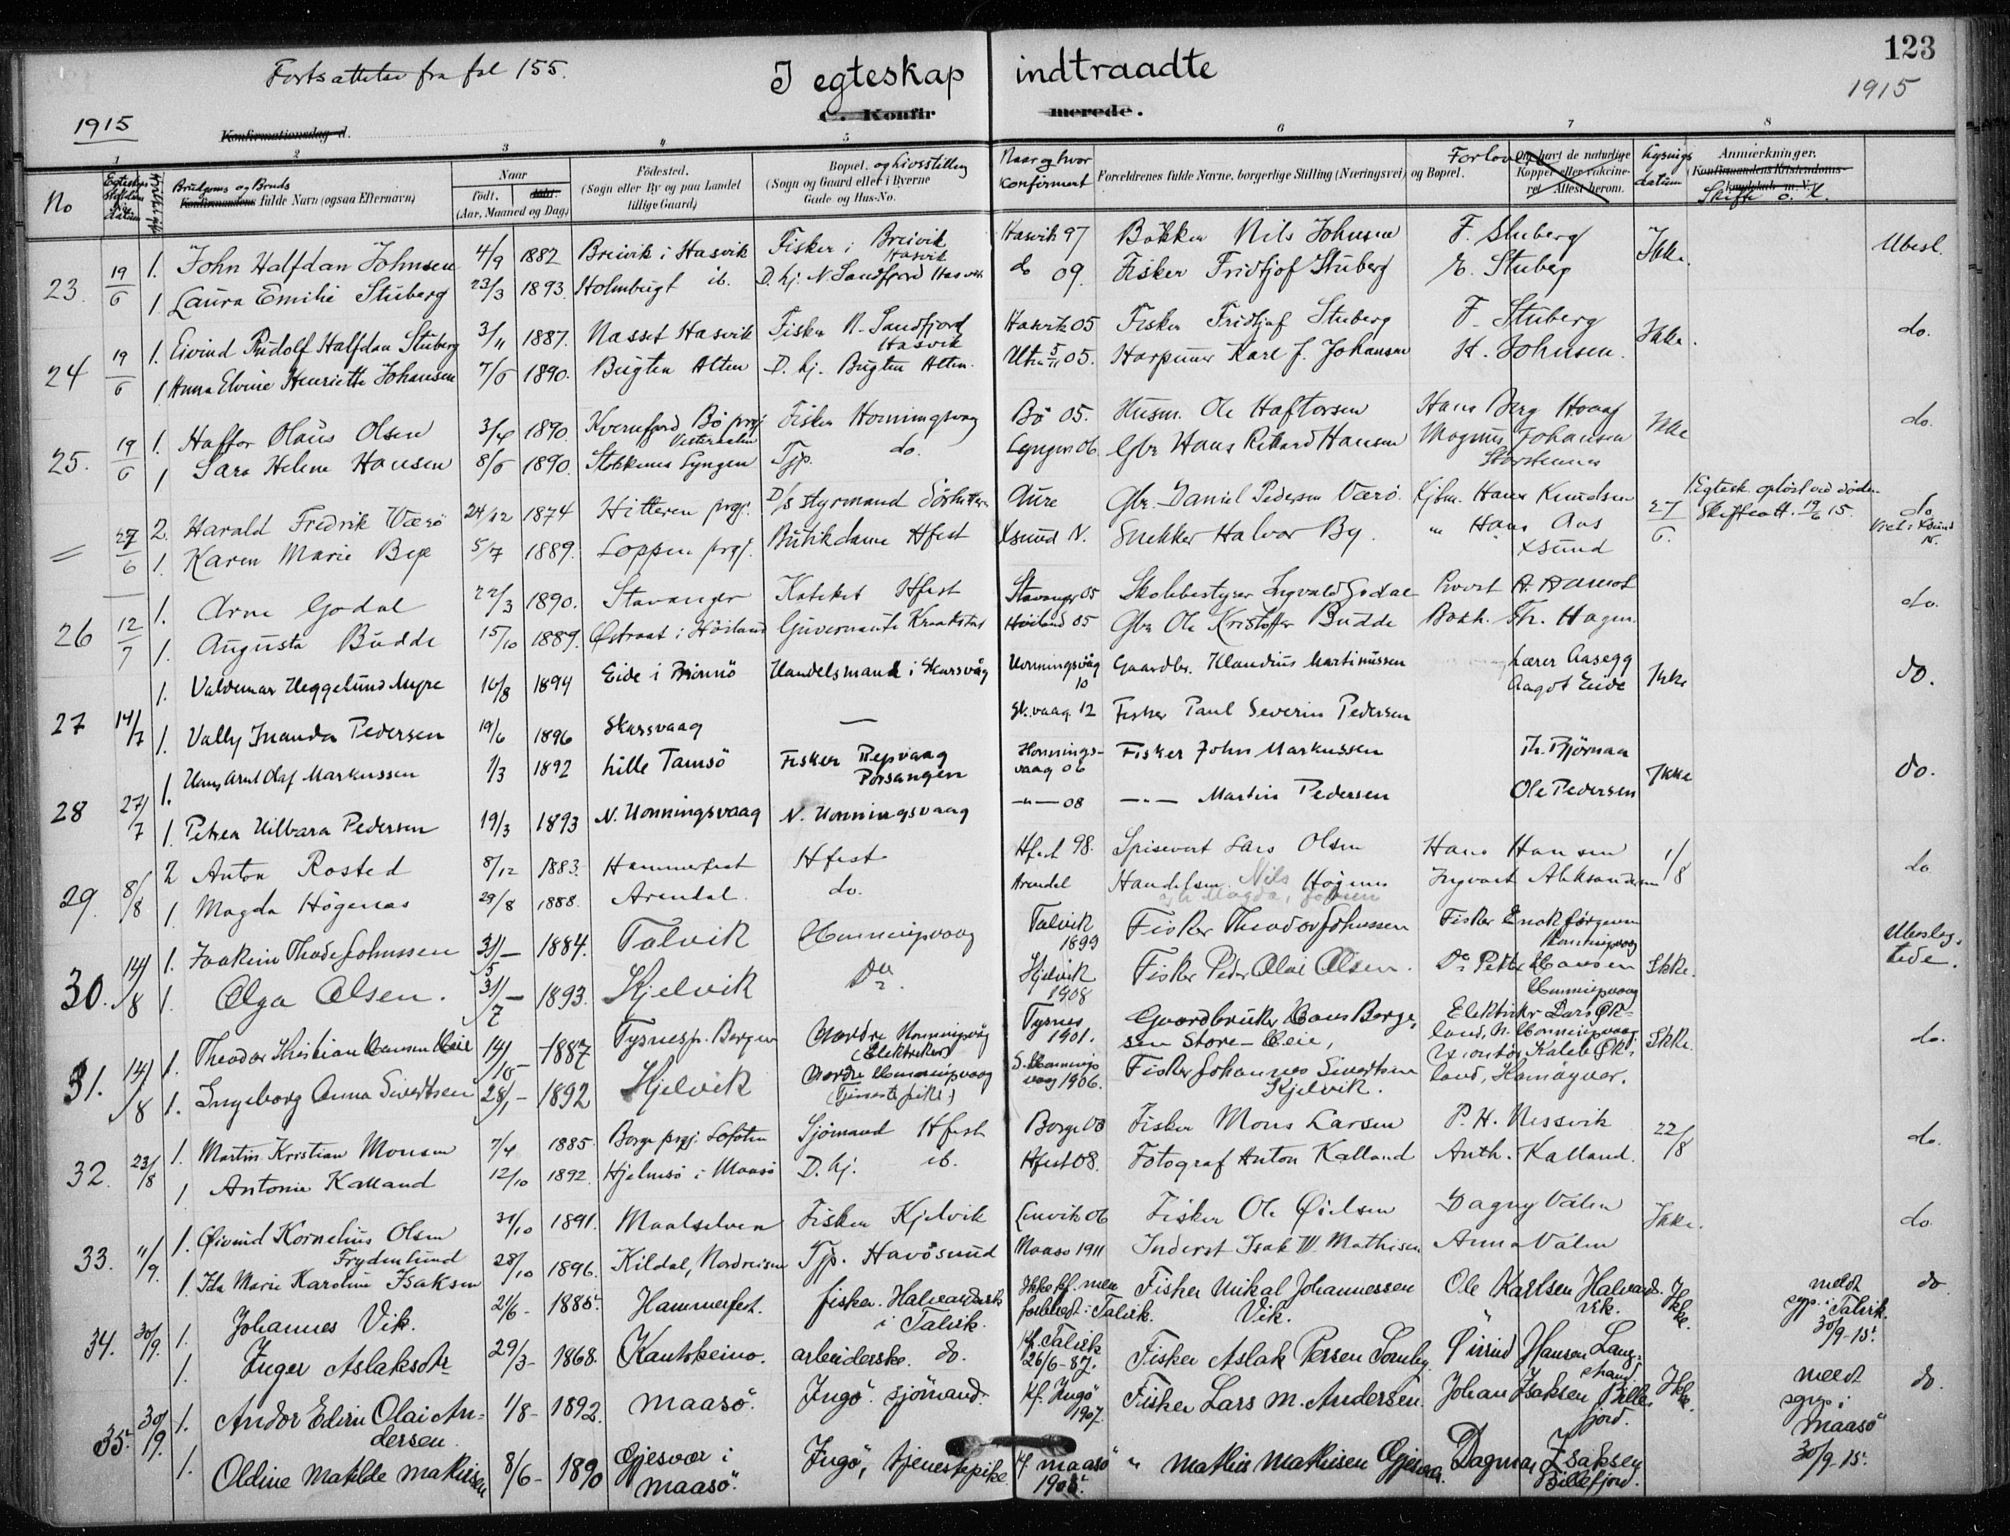 Fortsættelse fra fol 155.
I egteskap indtraadte
123
1915
1915
C. Konfirmerede.
Konfirmationsdag d.
1 2 3 4 5 6 7 8
No
Brudgoms og Bruds
Konfirmandens fulde Navn (ogsaa Efternavn)
Naar
Født.
døbt.
(Aar, Maaned og Dag)
Fødested.
(Sogn eller By og paa Landet tillige Gaard)
Bopæl. og Livsstilling
(Sogn og Gaard eller i Byerne Gade og Hus-No.
Naar og hvor konfirmert
Forældrenes fulde Navne, borgerlige Stilling (Næringsvei) og Bopæl.
Forlovere
Om havt de naturlige Kopper eller vakcineret. Attest herom.
Lysnings datum
Anmærkninger.
(Konfirmandens Kristendomskundskab m. V.)
Skifte o. l.
23. 19/6 1. John Halfdan Johnsen 4/9 1882 Breivik i Hasvik Fisker i Breivik Hasvik Hasvik 97 Bøkker Nils Johnsen F. Stuberg Ikke. Ubesl.
1 Laura Emilie Stuberg 23/3 1893 Holmbugt ib. D. hj. N. Sandfjord Hasvik do 09. Fisker Fridtjof Stuberg E. Stuberg
24 19/6 1. Eivind Rudolf Halfdan Stuberg 3/11 1887. Nasset Hasvik Fisker N. Sandfjord Hasvik Hasvik 05 Fisker Fridtjof Stuberg F. Stuberg Ikke. do.
1 Anna Elvine Henriette Johansen 7/5 1890. Bugten Alten D. hj. Bugten Alten. 05. Harpuner Karl J. Johansen H. Johnsen.
25. 19/6 1. Haftor Olaus Olsen 3/4 1890. Kvernfjord Bø prgj Vesteraalen Fisker Honningsvag Bø 05. Husm. Ole Haftorsen Hans Berg Ikke do.
1 Sara Helene Hansen 8/6 1890. Stokkenes Lyngen Tjp. do. Lyngen 06 Gbr Hans Rikard Hansen Magnus Johansen Storstennes
= 27/6 2. Harald Fredrik Værø 24/12 1874 Hitteren prgj. D/s styrmand Aure Gbr. Daniel Pedersen Værø. Kjbm. Hans Knudsen 27/6. 1. Egtesk. opløst ved døden. Skifteatt. 19/6 15. do
1. Karen Marie By 5/7 1889. Loppen prgj. Butikdame Hfest Xsund N. Snekker Halvor By. " Hans Aas Xsund Viet i Xsund N.
26 12/7 1. Arne Godal 22/3 1890. Stavanger Kateket Hfest Stavanger 05 Skolebestyrer Ingvald Godal Provst A. do.
1. Augusta Budde 15/10 1889. Østraat i Høiland Guvernante Kraakstad Høiland 05 Gbr Ole Kristoffer Budde Bokh. Th. Hagen.
27 14/7 1. Valdemar Heggelund Myre 10/8 1894 Eide i Brønnø Handelsmand i Skarsvåg Honningsvåg 10 Gaardbr. Klaudius Martinussen Lærer Aasegg Aagot Eide Ikke do.
1. Vally Inanda Pedersen 19/6 1896 Skarsvaag — Sk.vaag. 12 Fisker Paul Severin Pedersen
28 27/7 1. Hans Arnt Olaf Markussen 1/3 1892 Lille Tamsø Fisker Repvaag Porsangen Honningsvaag 06 Fisker John Markussen Th. Bjørnaa Ikke do.
1. Petrea Hilbara Pedersen 19/3 1893 N. Honningsvaag N. Honningsvaag —"— 08 —"— Martin Pedersen Ole Pedersen
29. 8/8 2 Anton Rosted 8/12 1883. Hammerfest Hfest Hfest 98. Spisevert Lars Olsen Hans Hansen 1/8 do.
1. Magda Högenas 29/8 1888. Arendal. do. Arendal Handelsm. Nils Högenes Ingvart Aleksandersen
30. 14/8 1. Joakim Thode Johnssen 31/5 — 1884. Talvik Honningsvaag Talvik 1899 Fisker Theodor Johnssen Fisker Enok Jørgensen Honningsvaag Ikke. Ubeslegtede.
1. Olga Olsen. 31/7 — 1893. Kjelvik Do. Kjelvik 1908 Fisker Peder Olai Olsen. Do. Petter Hansen Honningsvaag
31. 14/8 1. Theodor Kristian Hansen Heie 14/10 1887 Tysnespr. Bergen Nordre Honningsvåg (Elektriker) Tysnes 1901. Gaardbruker Hans Børgesen Store-Heie, Elektriker Lars Økland, N. Honningsvaag Ikke. do.
1. Ingeborg Anna Sivertsen 28/1 — 1892 Kjelvik Nordre Honningsvaag (Tjenestepike) S. Honningsvaag 1906. Fisker Johannes Sivertsen Kjelvik. Kaleb Økland, Hamøyvær.
32. 23/8 1. Martin Kristian Monsen 7/4 1885. Borge prgj. Lofoten Sjömand Hfest Borge 00 Fisker Mons Larsen P. H. Nessvik 22/8 do.
1 Antonie Kalland 12/10 1892. Hjelmsö i Maasö D. hj. ib. Hfest 08. Fotograf Anton Kalland Anth. Kalland.
33. 11/9. 1. Øivind Kornelius Olsen Frydenlund 31/10 1891. Maalselven Fisker Kjelvik Lenvik 06 Fisker Ole Øielsen Dagny Válen Ikke. do.
1. Ida Marie Karoline Isaksen 28/10 1896. Kildal, Nordreisen Tjp. Havösund Maaso 1911 Inderst Isak W. Mathisen Anna Válen
34. 30/9. 1. Johannes Vik. 21/6- 1885. Hammerfest. fisker. Halvardvik i Talvik. Ikke kf. men forberedt i Talvik. Fisker Mikal Johannessen Vik. Ole Karlsen Halvardvik. Ikke. meldt sgp. i Talvik. 30/9-15. do
1. Inger Aslaksdtr 29/3- 1868. Kautokeino. arbeiderske. do. Kf. Talvik 26/6-87. Fisker Aslak Persen Øivind Hansen Langstrand.
35. 30/9. 1. Andor Edin Olai Andersen 1/8- 1892. Maasö. Ingö. sjömand. Kf. Ingö 1907. Fisker Lars M. Andersen. Johan Isaksen Billefjord. Ikke. meldt sgp. i Maasö 30/9-15. do.
1. Oldine Matilde Mathisen 8/6- 1890 Gjesvær i Maasö. Ingö, tjenestepike Kf Maasö 1905. " Mathis Mathisen Gjesvær. Dagmar Isaksen Billefjord.